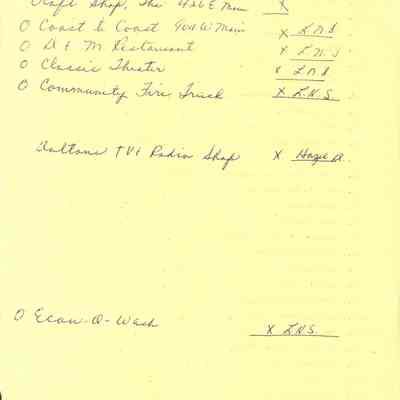 Craft Shop, The 426 E Main X
O Coast to Coast 904 W Main X L.N.S
O D & M Restaurant X L.N.S
O Classic Theater X L.N.S
O Community Fire Truck X L.N.S.
Daltons TV & Radio Shop X Hazel D.
O Econ-O-Wash X L.N.S.